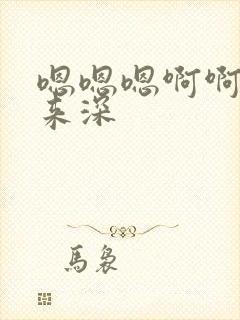 嗯嗯嗯啊啊
来深
馬裊